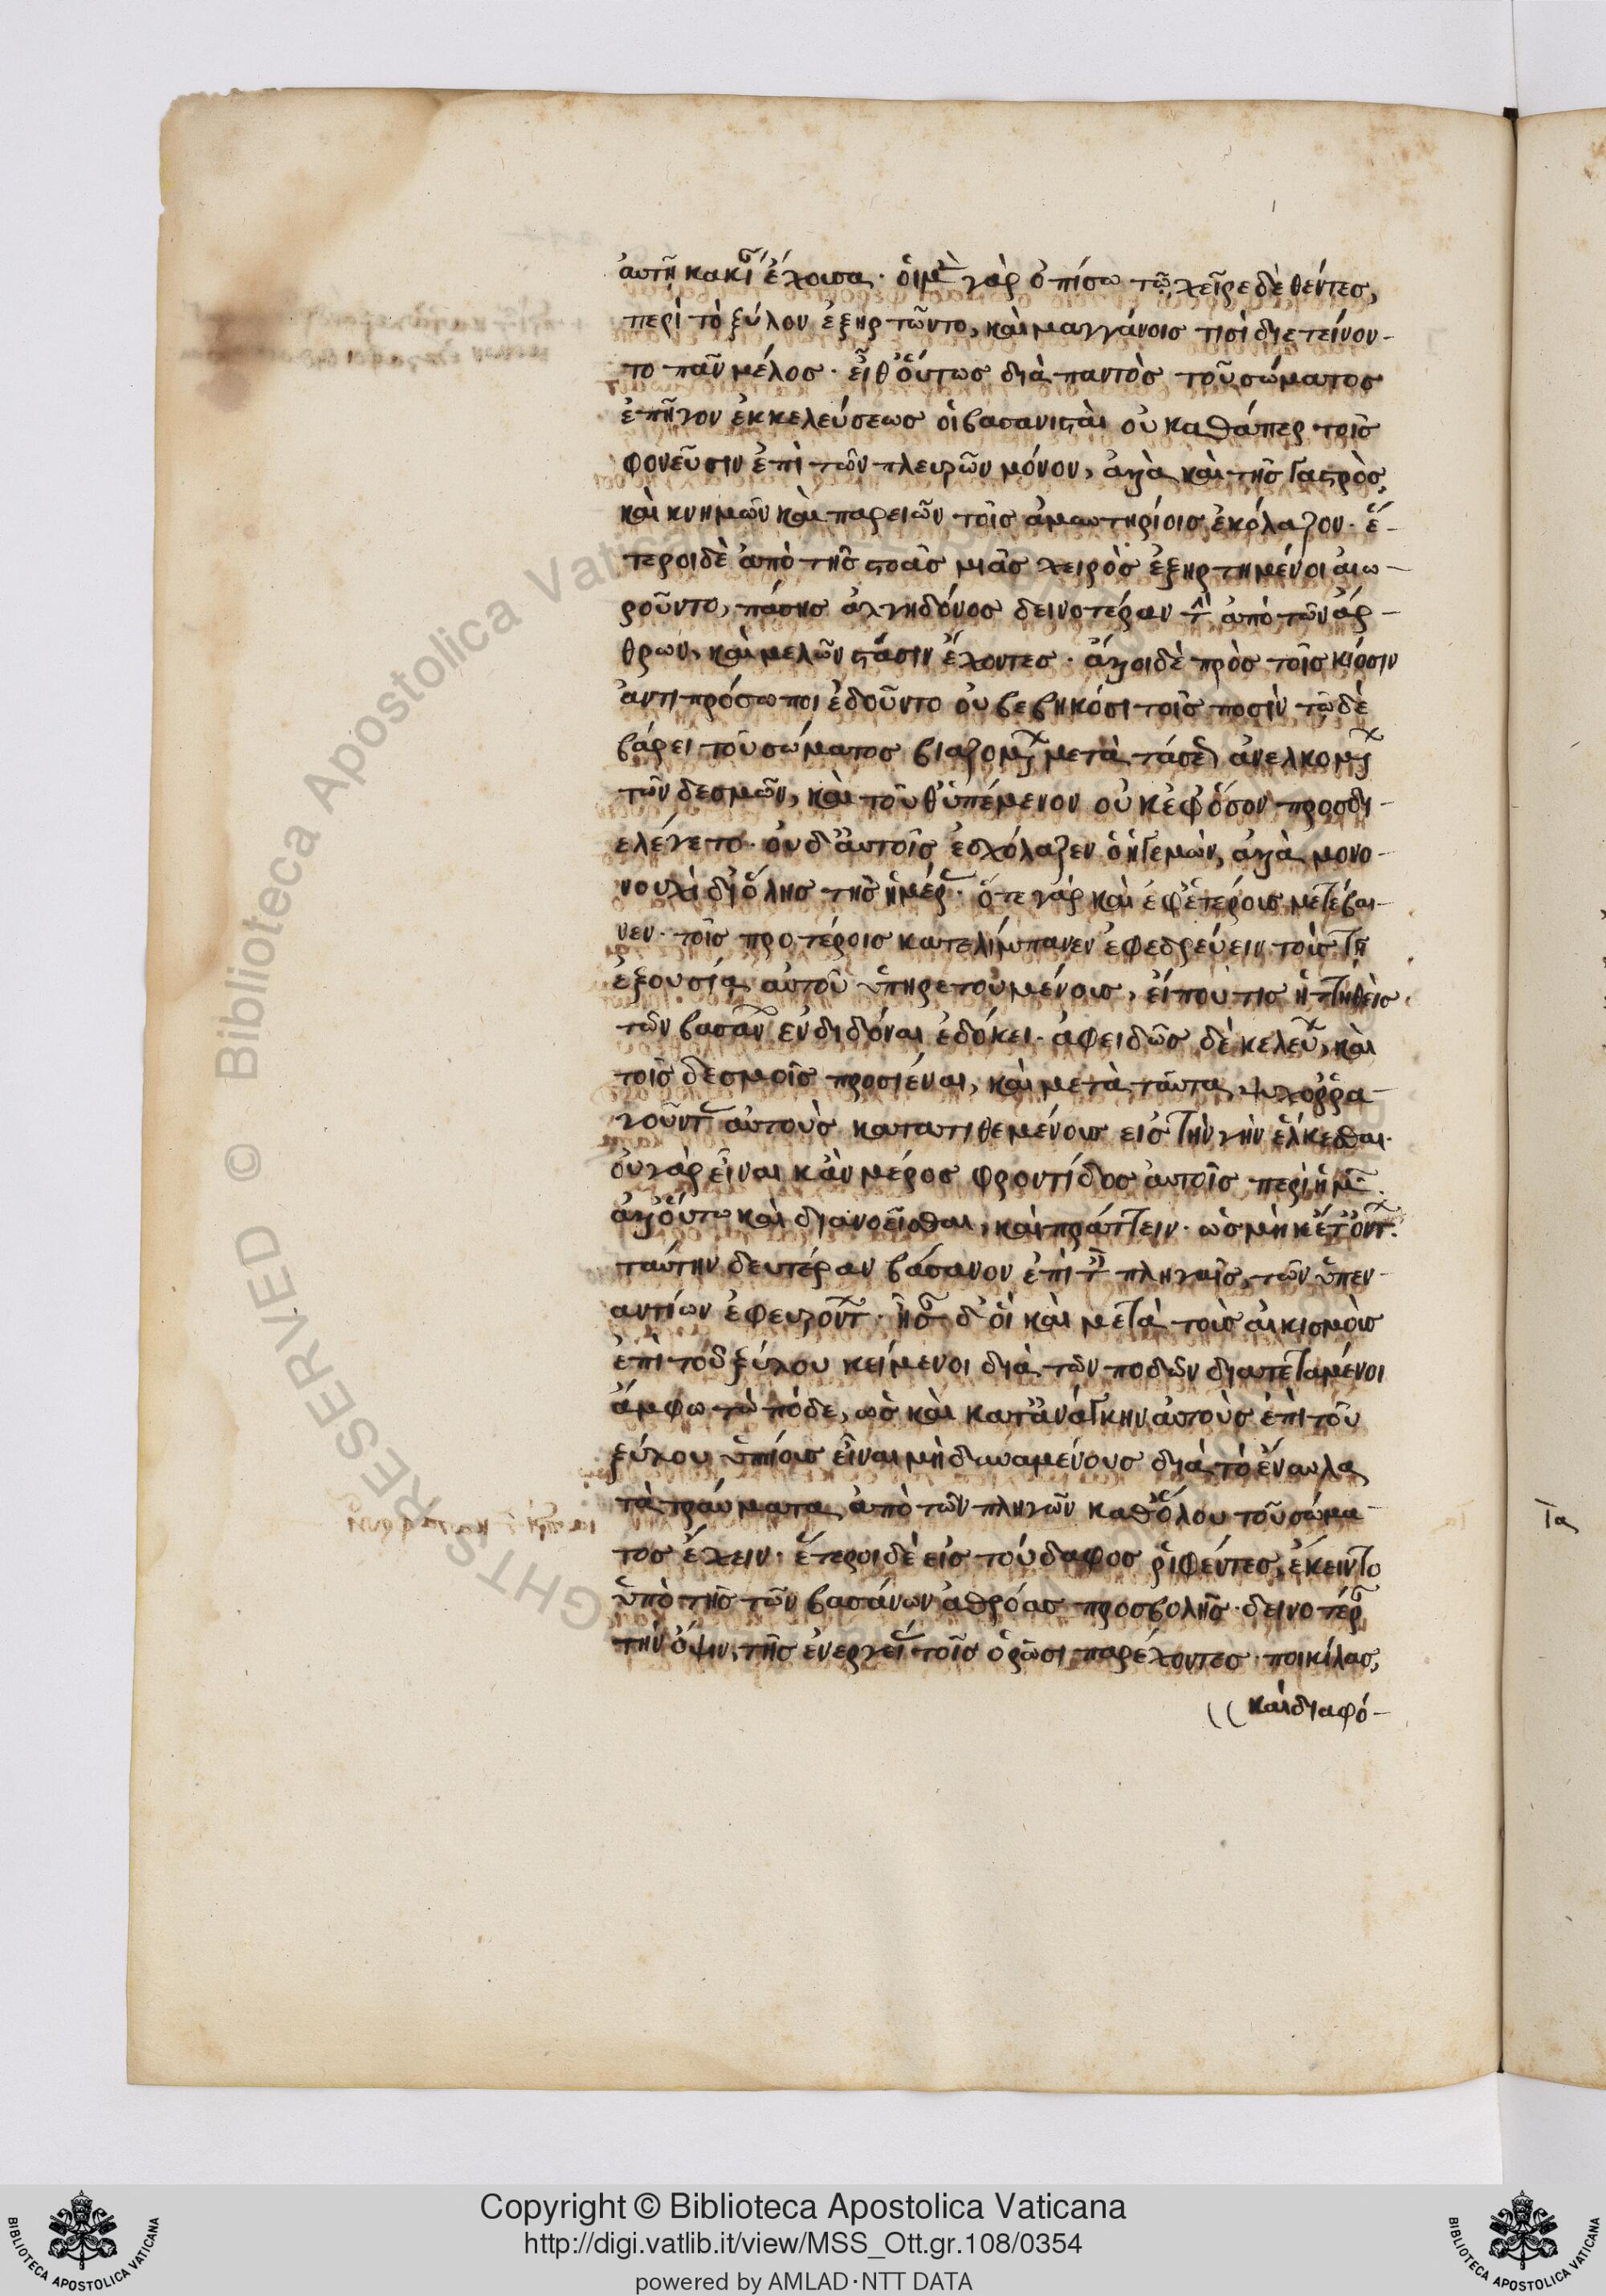 αὐτῆ κακίαν ἔχουσα· οἱ μὲν γὰρ ὀπίσω τῶ χεῖρε δεθέντες,
περὶ τὸ ξύλον ἐξηρτῶντο, καὶ μαγγάνοις τισὶ διετείνον-
το πᾶν μέλος· εἶθ' οὕτως διὰ παντὸς τοῦ σώματος
ἐπῆγον ἐκ κελεύσεως οἱ βασανισταὶ οὐ καθάπερ τοῖς
φονεῦσιν ἐπὶ τῶν πλευρῶν μόνον, ἀλλὰ καὶ τῆς γαστρὸς,
καὶ κνημῶν καὶ παρειῶν τοῖς ἀμυντηρίοις ἐκόλαζον· ἕ-
τεροι δὲ ἀπὸ τῆς στοᾶς μιᾶς χειρὸς ἐξηρτημένοι αἰω-
ροῦντο, πάσης ἀλγηδόνος δεινοτέραν τὴν ἀπὸ τῶν ἄρ-
θρων, καὶ μελῶν στάσιν ἔχοντες· ἄλλοι δὲ πρὸς τοῖς κίοσιν
ἀντιπρόσωποι ἐδοῦντο οὐ βεβηκόσι τοῖς ποσὶν τῶ δὲ
βάρει τοῦ σώματος βιαζομένων μετὰ τάσεως ἀνελκομένων
τῶν δεσμῶν, καὶ τοῦθ' ὑπέμενον οὐκ ἐφ' ὅσον προσδι-
ελέγετο· οὐδ' αὐτοῖς ἐσχόλαζεν ὁ ἡγεμὼν, ἀλλὰ μονο-
νουχὶ δι' ὅλης τῆς ἡμέρας· ὅτε γὰρ καὶ ἐφ' ἑτέρους μετέβαι-
νεν· τοῖς προτέροις κατελίμπανεν ἐφεδρεύειν τοὺς τῆ
ἐξουσία αὐτοῦ ὑπηρετουμένους, εἴ που τις ἡττηθεὶς
τῶν βασάνων ἐνδιδόναι ἐδόκει· ἀφειδῶς δὲ κελεύων, καὶ
τοῖς δεσμοῖς προσιέναι, καὶ μετὰ ταῦτα ψυχορρα-
γοῦντας αὐτοὺς κατατιθεμένους εἰς τὴν γῆν ἕλκεσθαι·
οὐ γὰρ εἶναι κἂν μέρος φροντίδος αὐτοῖς περὶ ἡμῶν
ἀλλ' οὕτω καὶ διανοεῖσθαι, καὶ πράττειν· ὡς μηκέτ' ὄντων.
ταύτην δευτέραν βάσανον ἐπὶ ταῖς πληγαῖς, τῶν ὑπεν-
αντίων ἐφευρόντων· ἦσαν δ' οἱ καὶ μετὰ τοὺς αἰκισμοὺς
ἐπὶ τοῦ ξύλου κείμενοι διὰ τῶν ποδῶν διατεταμένοι
ἄμφω τὼ πόδε, ὡς καὶ κατ' ἀνάγκην αὐτοὺς ἐπὶ τοῦ
ξύλου ὑπτίους εἶναι μὴ δυναμένους διὰ τὸ ἔναυλα
τὰ τραύματα ἀπὸ τῶν πληγῶν καθ' ὅλου τοῦ σώμα-
τος ἔχειν· ἕτεροι δὲ εἰς τοὔδαφος ῥιφέντες, ἔκειντο
ὑπὸ τῆς τῶν βασάνων ἀθρόας προσβολῆς· δεινοτέραν
τὴν ὄψιν τῆς ἐνεργείας τοῖς ὁρῶσι παρέχοντες· ποικίλας,
καὶ διαφό-
Copyright © Biblioteca Apostolica Vaticana
http://digi.vatlib.it/view/MSS_Ott.gr.108/0354
powered by AMLAD·NTT DATA